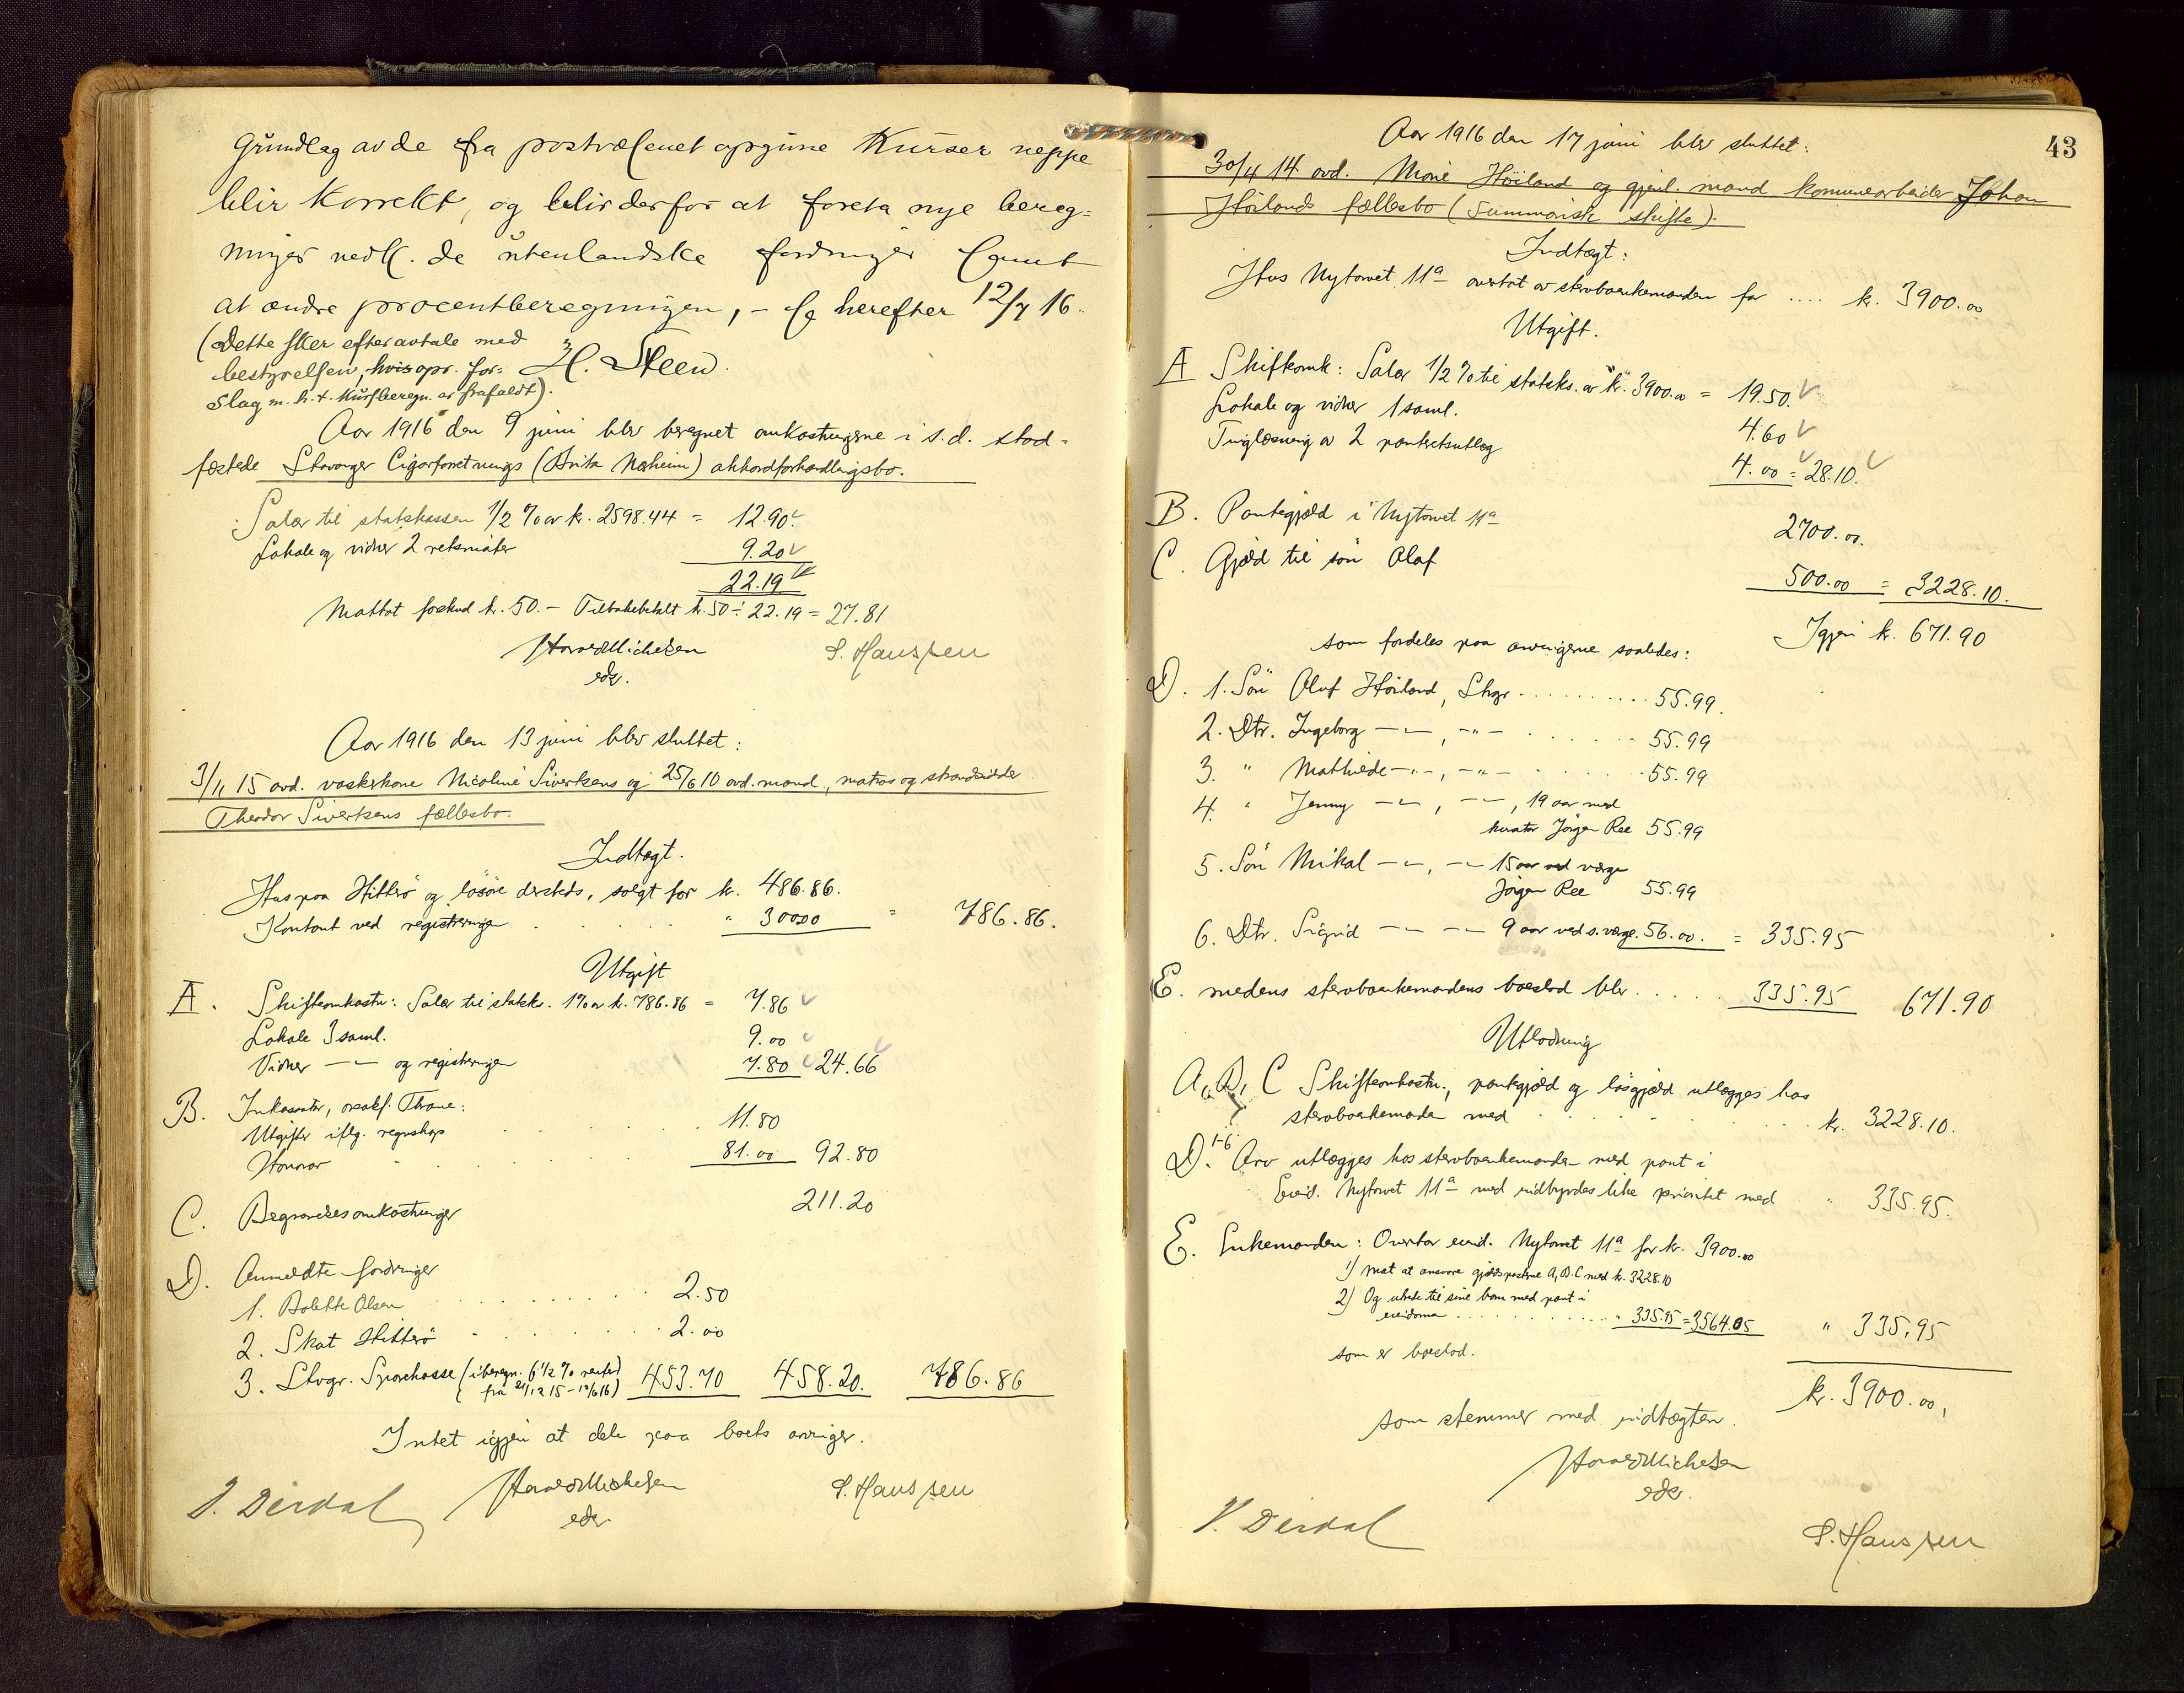 grundlag av de fra postvæsenet opgivne Kurser neppe
blir Korrekt, og blir derfor at foreta nye bereg-
ninger vedk. de utenlandske fordringer samt
at ændre procentberegningen, - se herefter 12/7 16.
(Dette sker efter avtale med
bestyrelsen, hvis opr. for-
slag m. h. t. Kursberegn. er frafaldt).
H. Steen.
Aar 1916 den 9 juni blev beregnet omkostningerne i s.d. stad-
fæstede Stavanger Cigarforretnings (Anita Næsheim) akkordforhandlingsbo.
Salær til statskassen 1/2 % av kr. 2598.44 = 12.90
Lokale og vidner 2 retsmøter 9.20
22.19
Mottat forskud kr. 50.- Tilbakebetalt kr. 50 ÷ 22.19 = 27.81
S. Hanssen
Aar 1916 den 13 juni blev sluttet:
3/11 15 avd. vaskekone Nicoline Sivertsens og 25/6 10 avd. mand, matros og strandsidder
Theodor Sivertsens fællesbo.
Indtægt.
Hus paa Hitterø og løsøre dersteds, solgt for kr. 486.86.
Kontant ved registreringen " 300.00 = 786.86.
Utgift
A. Skifteomkostn: Salær til statsk. 1% av kr. 786.86 = 7.86
Lokale 3 saml. 9.00
Vidner -"- og registreringen 7.80 24.66
B. Inkassator, oreakf. Thrane:
Utgifter iflg. regnskap 11.80
Honorar 81.00 92.80
C. Begravelsesomkostninger 211.20
D. Anmeldte fordringer
1. Bolette Olsen 2.50
2. Skat Hitterø 2.00
3. Stvgr. Sparekasse (iberegn. 6 1/2 % renter
fra 21/12 15 - 13/6 16) 453.70 458.20. 786.86
Intet igjen at dele paa boets arvinger.
S. Hanssen
43
Aar 1916 den 17 juni blev sluttet:
30/4 14 avd. Marie Höiland og gjenl. mand komunearbeider Johan
Höilands fællesbo (summarisk skifte).
Indtægt:
Hus Nytorvet 11a overtat av stervboenkemanden for .... kr. 3900.00
Utgift.
A Skifteomk: Salær 1/2 % til statsks. av kr. 3900.00 = 19.50.
Lokale og vidner 1 saml. 4.60
Tinglæsning av 2 panteretsutlæg 4.00 = 28.10.
B. Pantegjæld i Nytorvet 11a 2700.00.
C. Gjæld til søn Olaf 500.00 = 3228.10.
Igjen kr. 671.90
som fordeles paa arvingerne saaledes:
D. 1. Søn Olaf Höiland, Stvgr. 55.99.
2. Dtr. Ingeborg -"-, -"- 55.99
3. " Mathilde -"-, -"- 55.99
4. " Jenny -"-, -"-, 19 aar med
kurator Jörgen Ree 55.99
5. Søn Mikal -"-, -"- 15 aar ved værge
Jörgen Ree 55.99
6. Dtr. Sigrid -"- -"- 9 aar ved s. værge. 56.00. = 335.95
E. medens stervboenkemandens boeslod blev ..... 335.95 671.90
Utlodning
A, B, C Skifteomkostn., pantegjæld og løsgjæld utlægges hos
stervboenkemanden med kr. 3228.10.
D. 1-6. Arv utlægges hos stervboenkemanden med pant i
eied. Nytorvet 11a med indbyrdes like prioritet med " 335.95.
E. Enkemanden: Overtar eied. Nytorvet 11a for kr. 3900.00
1) mot at ansvare gjældsposterne A, B, C med kr. 3228.10
2) Og utrede til sine barn med pant i
eiendommen " 335.95 = 3564.05 " 335.95
som er boeslod.
kr. 3900.00,
som stemmer med indtægten.
S. Hanssen